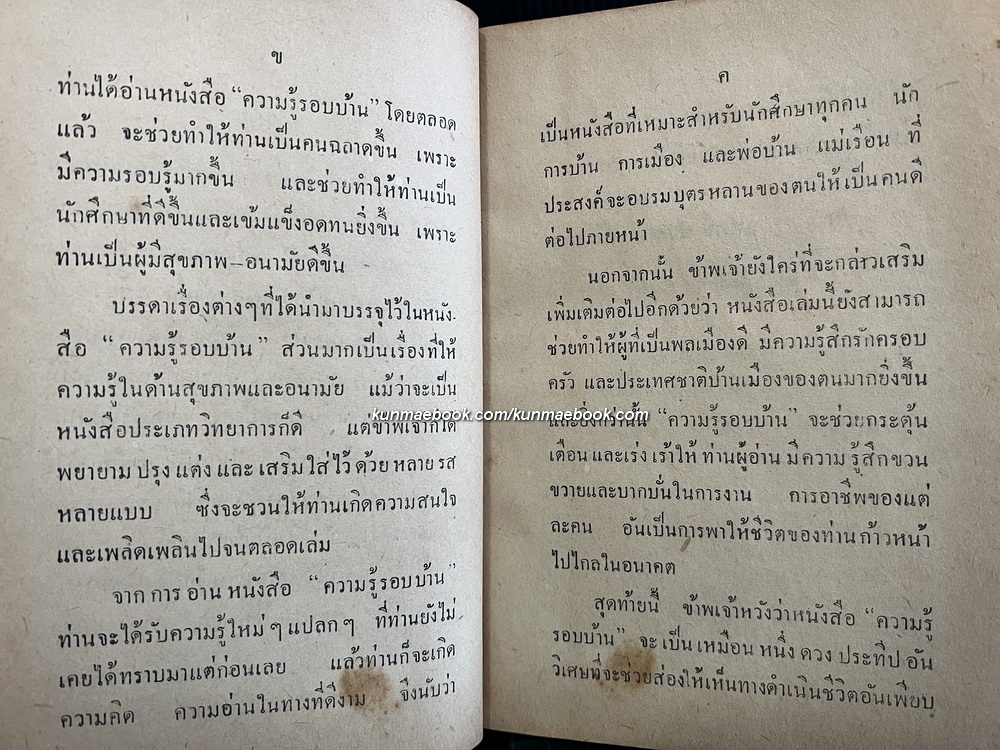 ข
ท่านได้อ่านหนังสือ “ความรู้รอบบ้าน” โดยตลอด
แล้ว จะช่วยทำให้ท่านเป็นคนฉลาดขึ้น เพราะ
มีความรอบรู้มากขึ้น และช่วยทำให้ท่านเป็น
นักศึกษาที่ดีขึ้นและเข้มแข็งอดทนยิ่งขึ้น เพราะ
ท่านเป็นผู้มีสุขภาพ–อนามัยดีขึ้น
บรรดาเรื่องต่างๆที่ได้นำมาบรรจุไว้ในหนัง-
สือ “ความรู้รอบบ้าน” ส่วนมากเป็นเรื่องที่ให้
ความรู้ในด้านสุขภาพและอนามัย แม้ว่าจะเป็น
หนังสือประเภทวิทยาการก็ดี แต่ข้าพเจ้าก็ได้
พยายาม ปรุง แต่ง และ เสริม ใส่ ไว้ ด้วย หลาย รส
หลายแบบ ซึ่งจะชวนให้ท่านเกิดความสนใจ
และเพลิดเพลินไปจนตลอดเล่ม
จาก การ อ่าน หนังสือ “ความรู้รอบบ้าน”
ท่านจะได้รับความรู้ใหม่ๆ แปลกๆ ที่ท่านยังไม่
เคยได้ทราบมาแต่ก่อนเลย แล้วท่านก็จะเกิด
ความคิด ความอ่านในทางที่ดีงาม จึงนับว่า
ค
เป็นหนังสือที่เหมาะสำหรับนักศึกษาทุกคน นัก
การบ้าน การเมือง และพ่อบ้าน แม่เรือน ที่
ประสงค์จะอบรมบุตรหลานของตนให้เป็นคนดี
ต่อไปภายหน้า
นอกจากนั้น ข้าพเจ้ายังใคร่ที่จะกล่าวเสริม
เพิ่มเติมต่อไปอีกด้วยว่า หนังสือเล่มนี้ยังสามารถ
ช่วยทำให้ผู้ที่เป็นพลเมืองดี มีความรู้สึกรักครอบ
ครัว และประเทศชาติบ้านเมืองของตนมากยิ่งขึ้น
และยิ่งกว่านั้น “ความรู้รอบบ้าน” จะช่วยกระตุ้น
เตือน และเร่ง เร้าให้ ท่านผู้อ่าน มีความ รู้สึกขวน
ขวายและบากบั่นในการงาน การอาชีพของแต่
ละคน อันเป็นการพาให้ชีวิตของท่านก้าวหน้า
ไปไกลในอนาคต
สุดท้ายนี้ ข้าพเจ้าหวังว่าหนังสือ “ความรู้
รอบบ้าน” จะ เป็น เหมือน หนึ่ง ดวง ประทีป อัน
วิเศษที่จะช่วยส่องให้เห็นทางดำเนินชีวิตอันเพียบ
kunmaebook.com/kunmaebook.com